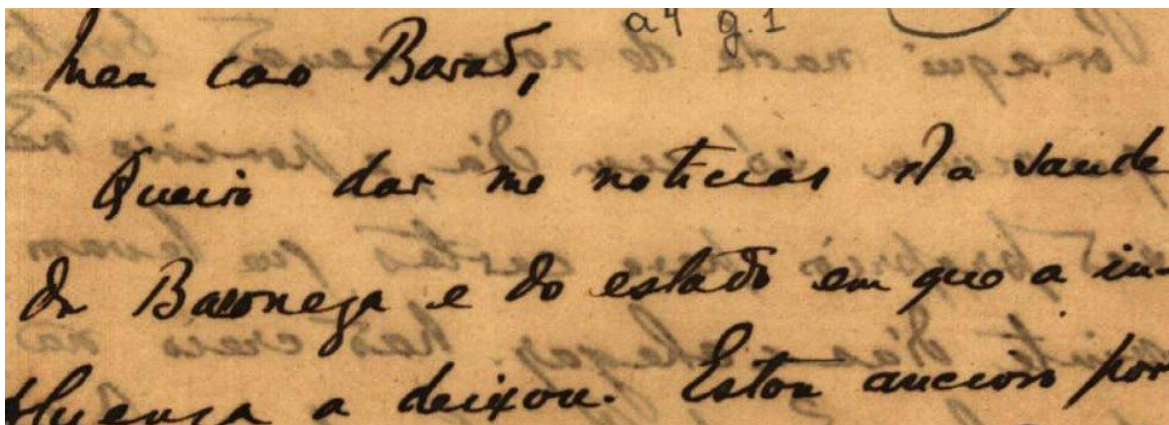 a4 g.1
Meu caro Barão,
Queira dar me noticias da saude
da Baroneza e do estado em que a in-
fluenza a deixou. Estou ancioso por